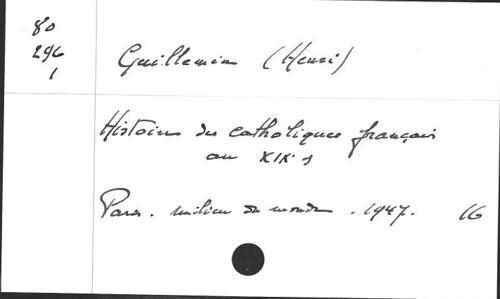 80
296
1
Guillemin (Henri)
Histoire des catholiques français
au XIX s
Paris. milieu du monde. 1947. 16